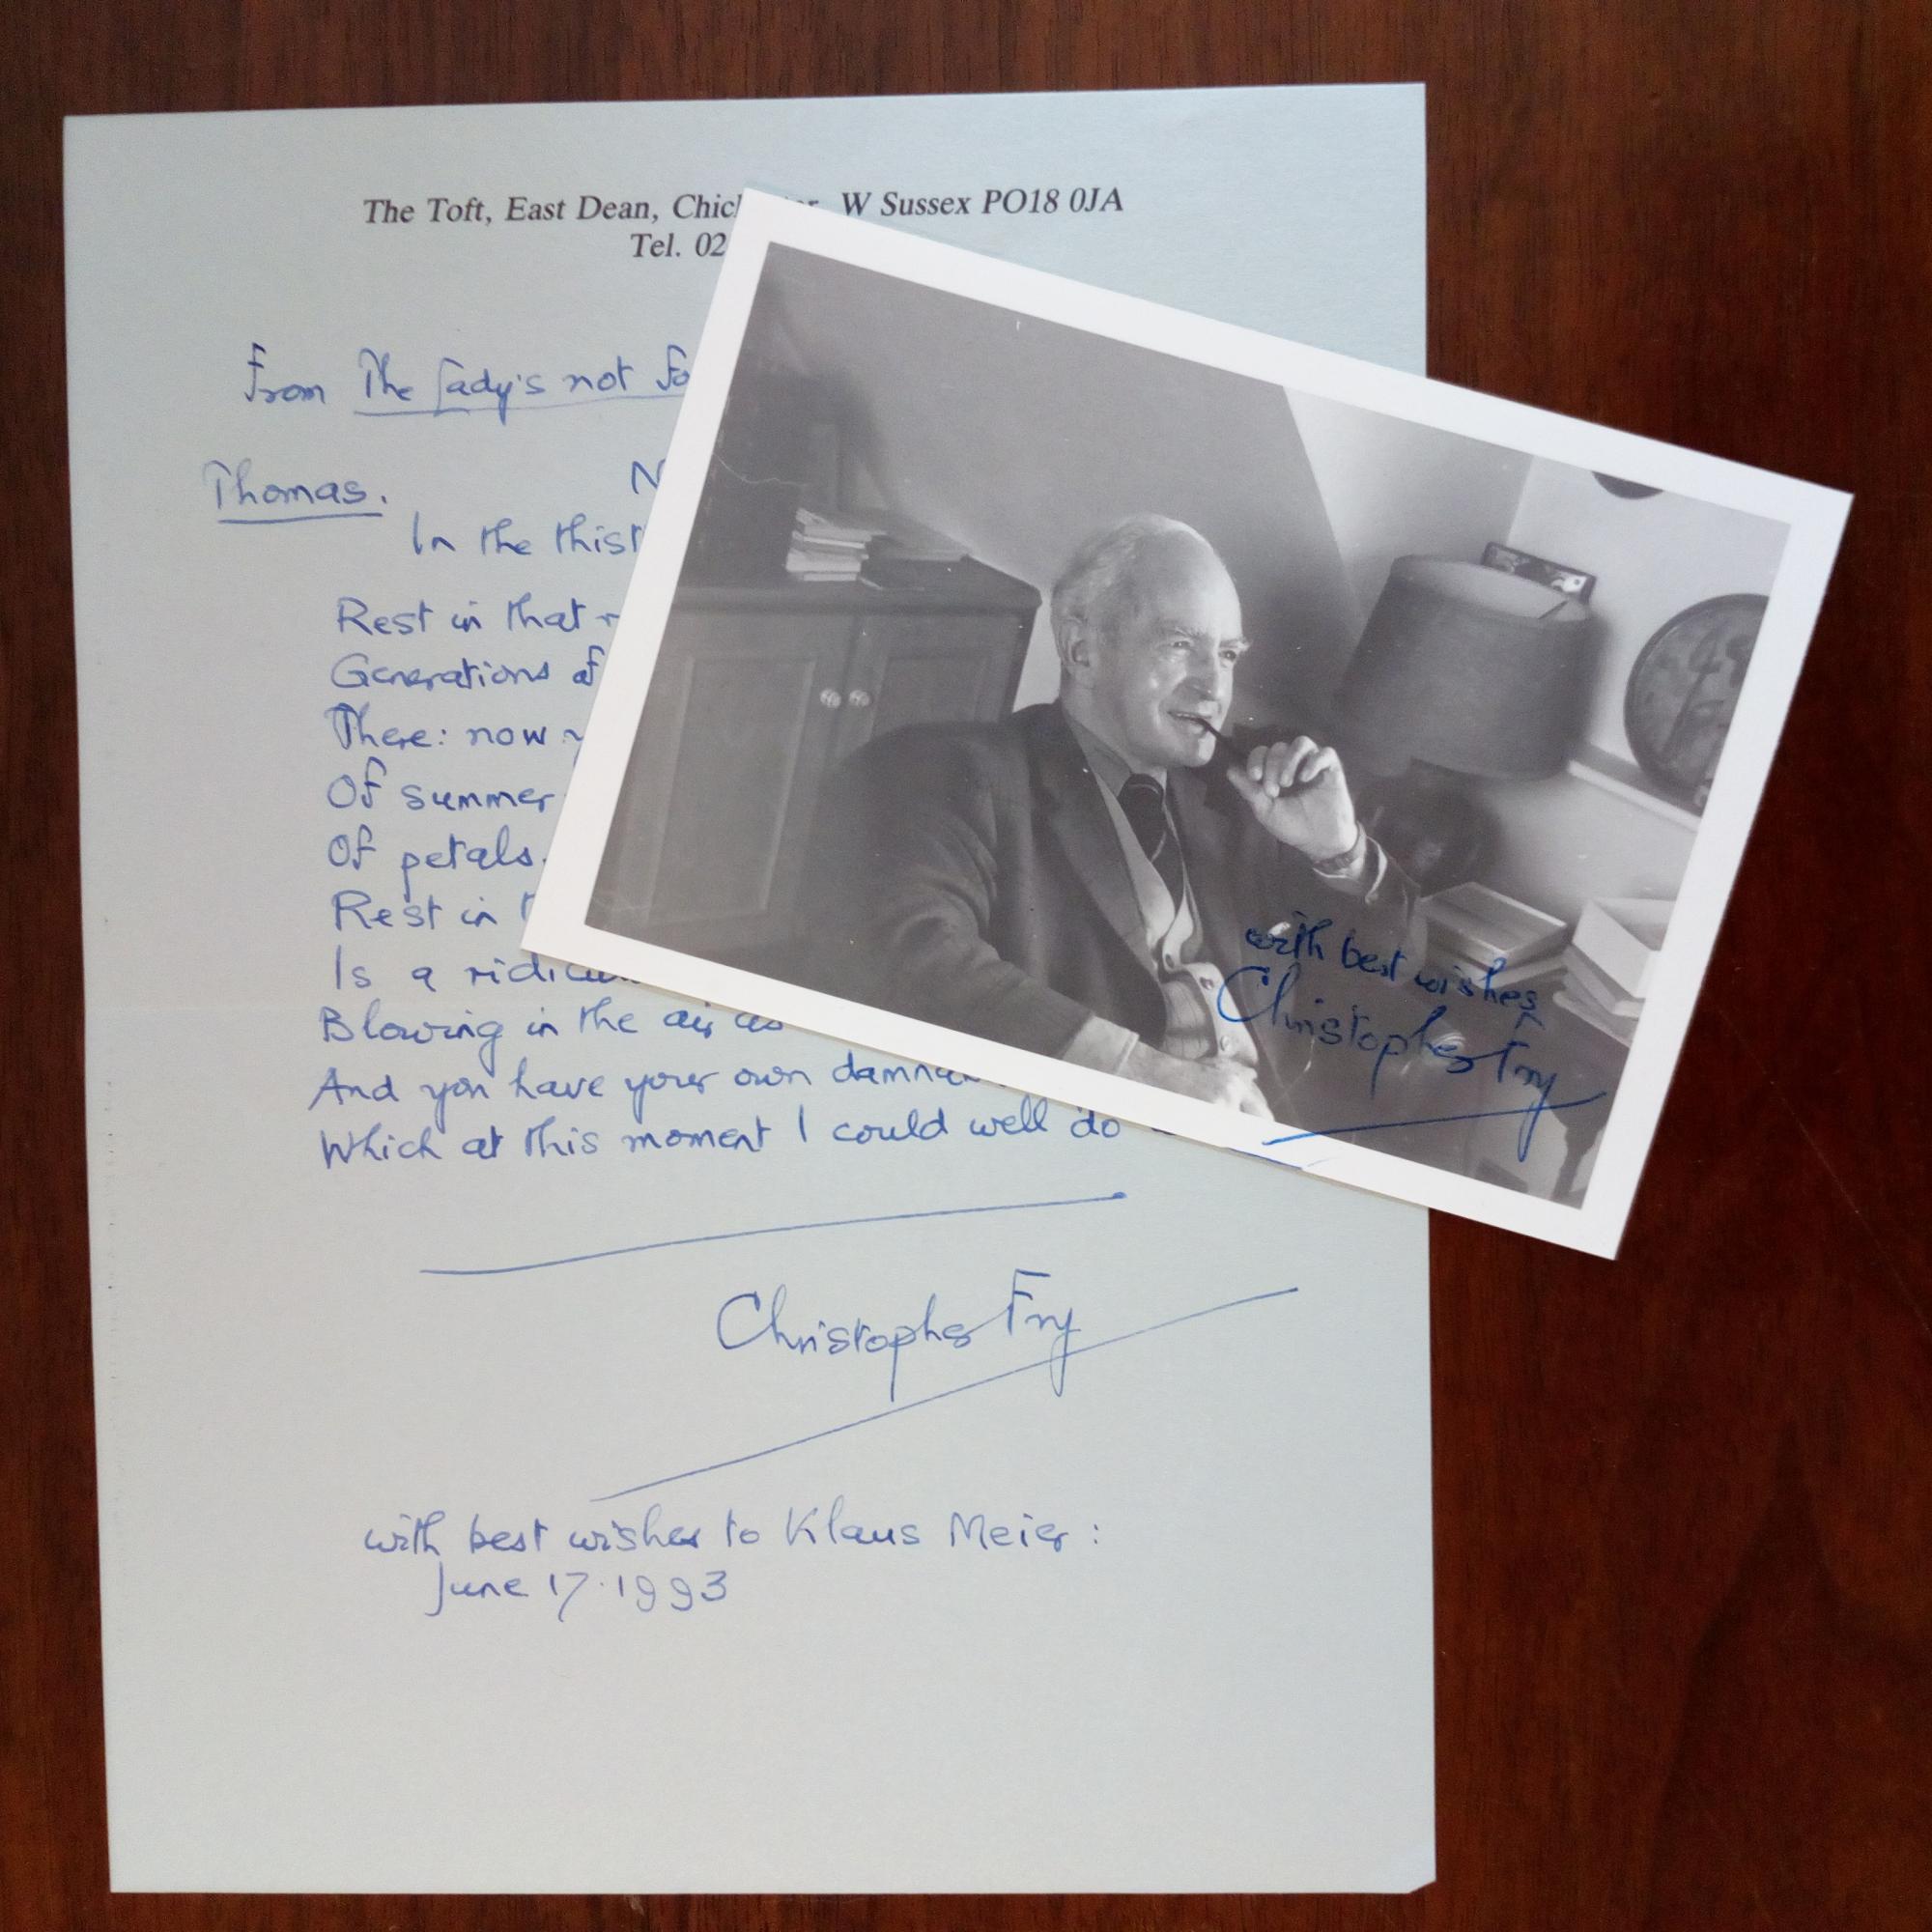 The Toft, East Dean, Chic W Sussex PO18 0JA
Tel. 02
From The Lady's not Fo
Thomas. N
In the thist
Rest in that
Generations of
There: now
Of summer
Of petals.
Rest in
Is a
Blowing in the air, as
And you have your own
Which at this moment I could well do
Christopher Fry
with best wishes to Klaus Meier:
June 17. 1993
with best wishes
Christopher Fry